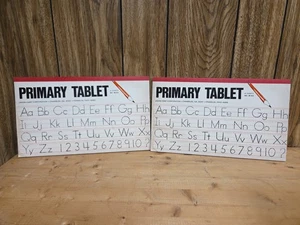 PRIMARY TABLET
Aa Bb Cc Dd Ee Ff Gg Hh
Ii Jj Kk Ll Mm Nn Oo Pp
Qq Rr Ss Tt Uu Vv Ww Xx
Yy Zz 1 2 3 4 5 6 7 8 9 10 ?
PRIMARY TABLET
Aa Bb Cc Dd Ee Ff Gg Hh
Ii Jj Kk Ll Mm Nn Oo Pp
Qq Rr Ss Tt Uu Vv Ww Xx
Yy Zz 1 2 3 4 5 6 7 8 9 10 ?